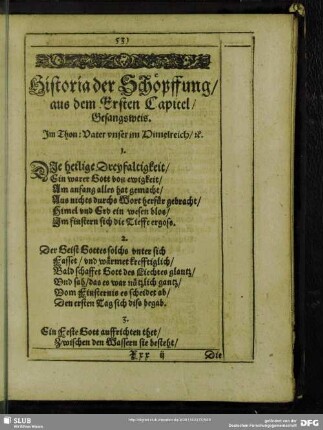 531
Historia der Schöpffung/
aus dem Ersten Capitel/
Gesangsweis.
Im Thon: Vater vnser im Himelreich/ ꝛc.
1.
DJe heilige Dreyfaltigkeit/
Ein warer Gott von ewigkeit/
Am anfang alles hat gemacht/
Aus nichts durchs Wort herfür gebracht/
Himel vnd Erd ein wesen blos/
Im finstern sich die Tieffe ergoss.
2.
Der Geist Gottes solchs vnter sich
Fasset/ vnd wärmet krefftiglich/
Bald schaffet Gott des Liechtes glantz/
Vnd sah/ das es war nützlich gantz/
Vom Finsternis es scheidet ab/
Den ersten Tag sich diss begab.
3.
Ein Feste Gott auffrichten thet/
Zwischen den Wassern sie besteht/
Xxx ij Die
SLUB
Wir führen Wissen.
gefördert von der
Deutschen Forschungsgemeinschaft
DFG